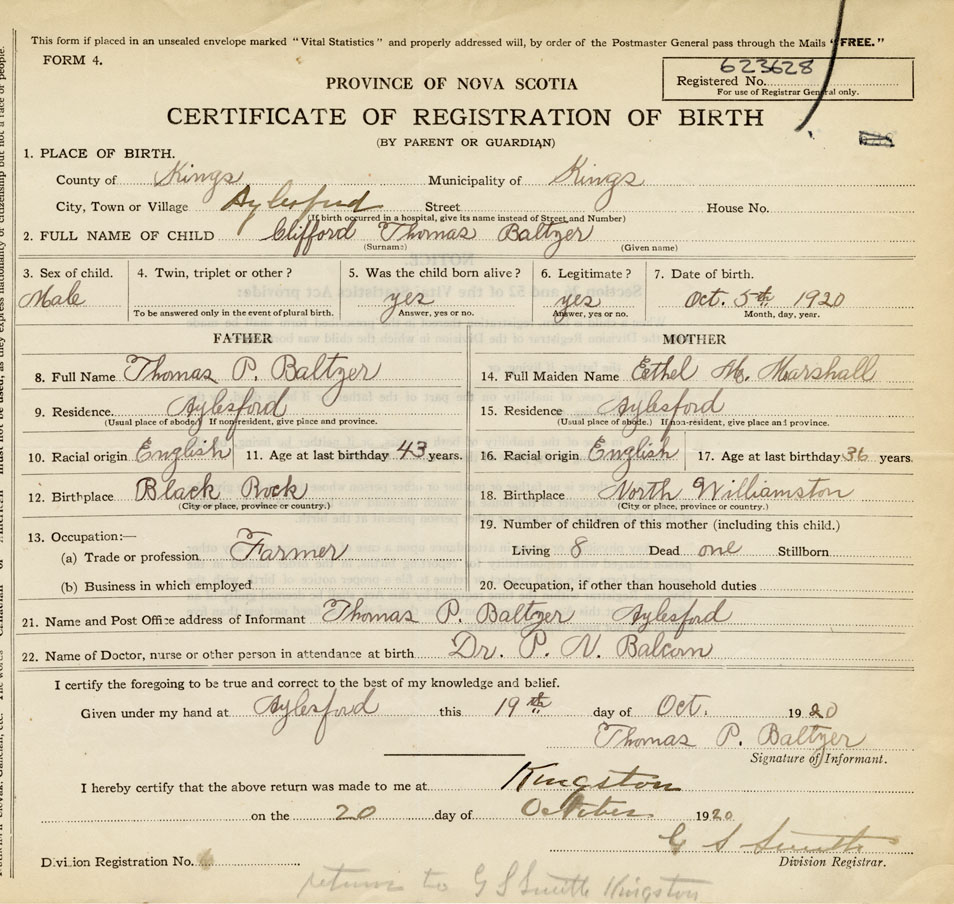 This form if placed in an unsealed envelope marked "Vital Statistics" and properly addressed will, by order of the Postmaster General pass through the Mails "FREE."
FORM 4.
623628
Registered No.
For use of Registrar General only.
PROVINCE OF NOVA SCOTIA
CERTIFICATE OF REGISTRATION OF BIRTH
(BY PARENT OR GUARDIAN)
1. PLACE OF BIRTH.
County of Kings Municipality of Kings
City, Town or Village Aylesford Street House No.
(If birth occurred in a hospital, give its name instead of Street and Number)
2. FULL NAME OF CHILD Clifford Thomas Baltzer
(Surname) (Given name)
3. Sex of child. 4. Twin, triplet or other? 5. Was the child born alive? 6. Legitimate? 7. Date of birth.
Male yes yes Oct. 5th 1920
To be answered only in the event of plural birth. Answer, yes or no. Answer, yes or no. Month, day, year.
FATHER MOTHER
8. Full Name Thomas P. Baltzer 14. Full Maiden Name Eethel M. Marshall
9. Residence. Aylesford 15. Residence Aylesford
(Usual place of abode) If non-resident, give place and province. (Usual place of abode.) If non-resident, give place and province.
10. Racial origin English 11. Age at last birthday 43 years. 16. Racial origin English 17. Age at last birthday 36 years.
12. Birthplace Black Rock 18. Birthplace North Williamston
(City or place, province or country.) (City or place, province or country.)
13. Occupation:— 19. Number of children of this mother (including this child.)
(a) Trade or profession Farmer Living 8 Dead one Stillborn
(b) Business in which employed 20. Occupation, if other than household duties
21. Name and Post Office address of Informant Thomas P. Baltzer Aylesford
22. Name of Doctor, nurse or other person in attendance at birth Dr. P. N. Balcom
I certify the foregoing to be true and correct to the best of my knowledge and belief.
Given under my hand at Aylesford this 19th day of Oct. 1920
Thomas P. Baltzer
Signature of Informant.
I hereby certify that the above return was made to me at Kingston
on the 20 day of October 1920
G S Smith
Division Registrar.
Division Registration No.
return to G S Smith Kingston